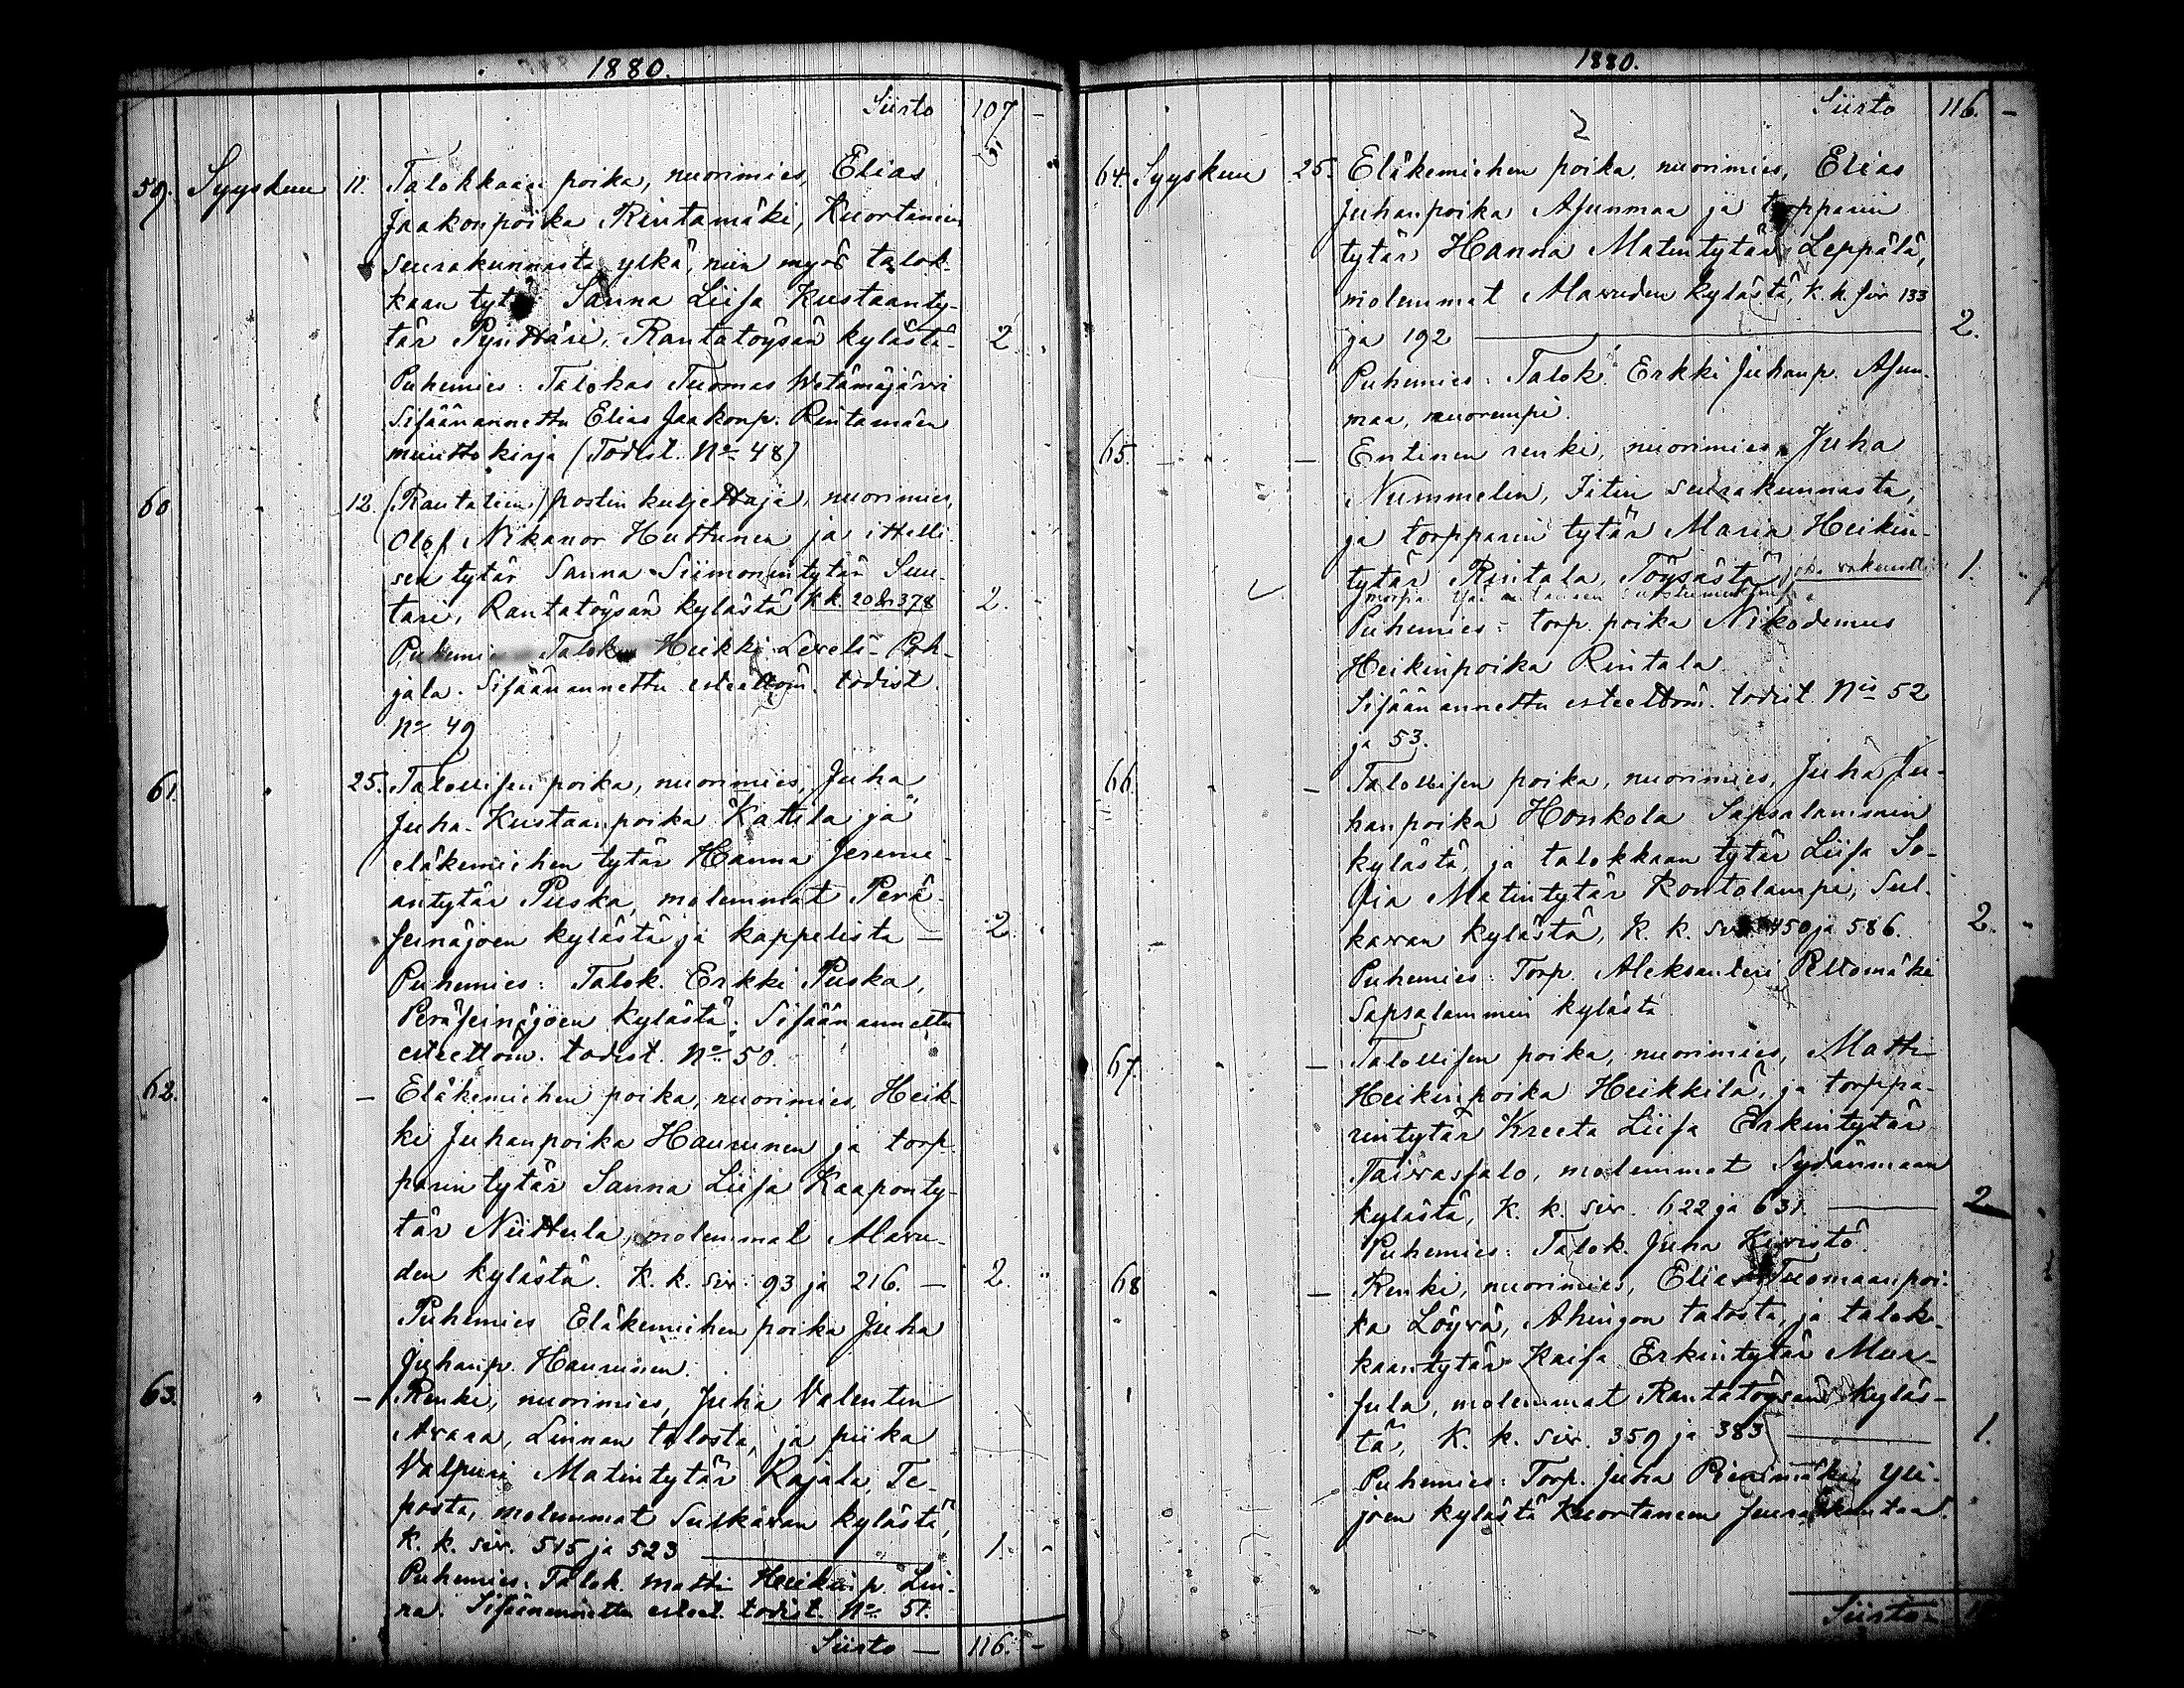 1880.
Siirto 107 -
59. Syyskuu 11. Talokkaan poika, nuorimies, Elias
Jaakonpoika Rintamäki, Kuortaneen
seurakunnasta ylkä, niin myös talok-
kaan tytär Sanna Liisa Kustaanty-
tär Pynttäri, Rantatöysän kylästä - 2
Puhemies: Talokas Tuomas Wetämäjärvi
Sisäänannettu Elias Jaakonp. Rintamäen
muuttokirja (Todist. No 48)
60 " 12. (Rautatien) postin kuljettaja, nuorimies,
Olof Nikanor Huttunen ja ittelli-
sen tytär Sanna Siimonintytär Suu-
tari, Rantatöysän kylästä K.k. 378 2. -
Puhemies Talok. Heikki Poh-
jala. Sisäänannettu esteettöm. todist.
No 49
61. " 25. Talollisen poika, nuorimies, Juha
Juha-Kustaanpoika Kattila ja
eläkemiehen tytär Hanna Jeremi-
antytär Puska, molemmat Perä-
seinäjoen kylästä ja kappelista - 2
Puhemies: Talok. Erkki Puska,
Peräseinäjoen kylästä. Sisäänannettu
esteettöm. todist. No 50.
62. " - Eläkemiehen poika, nuorimies, Heik-
ki Juhanpoika Haurunen ja torp-
parin tytär Sanna Liisa Kaaponty-
tär Niittula, molemmat Alavu-
den kylästä. K. k. siv. 93 ja 216. - 2. "
Puhemies Eläkemiehen poika Juha
Juhanp. Haurunen.
63. " - Renki, nuorimies, Juha Valentin
Avara, Linnan talosta, ja piika
Valpuri Matintytär Rajala, Te-
posta, molemmat Sulkavan kylästä,
K. k. siv. 515 ja 523 1. -
Puhemies: Talok. Matti Heikinp. Lin-
na. Sisäänannettu esteet. todist. No 51.
Siirto - 116. -
1880.
Siirto 116. -
64. Syyskuu 25. Eläkemiehen poika, nuorimies, Elias
Juhanpoika Asunmaa ja torpparin
tytär Hanna Matintytär Leppälä,
molemmat Alavuden kylästä, K. k. siv 133
ja 192 2.
Puhemies: Talok. Erkki Juhanp. Asun-
maa, nuorempi.
65. - " - Entinen renki, nuorimies, Juha
Nummelin, Iitin seurakunnasta,
ja torpparin tytär Maria Heikin-
tytär Rintala, Töysästä 1.
Puhemies: torp. poika Nikodemus
Heikinpoika Rintala.
Sisäänannettu esteettöm. todist. Nis 52
ja 53.
66. " - Talollisen poika, nuorimies, Juha Ju-
hanpoika Honkola Sapsalammin
kylästä, ja talokkaan tytär Liisa So-
fia Matintytär Kontolampi, Sul-
kavan kylästä, K. k. siv. 450 ja 586. 2.
Puhemies: Torp. Aleksanteri Peltomäki
Sapsalammin kylästä
67. " - Talollisen poika, nuorimies, Matti
Heikinpoika Heikkilä, ja torppa-
rintytär Kreeta Liisa Erkintytär
Taivassalo, molemmat Sydänmaan
kylästä, K. k. siv. 622 ja 631. 2
Puhemies: Talok. Juha Kivistö.
68 " - Renki, nuorimies, Elias Tuomaanpoi-
ka Löyvä, Ahingon talosta, ja talok-
kaantytär Kaisa Erkintytär Mur-
sula, molemmat Rantatöysän kyläs-
tä, K. k. siv. 359 ja 383 1.
Puhemies: Torp. Juha Pienimäki Yli-
joen kylästä Kuortaneen seurakuntaa.
Siirto -